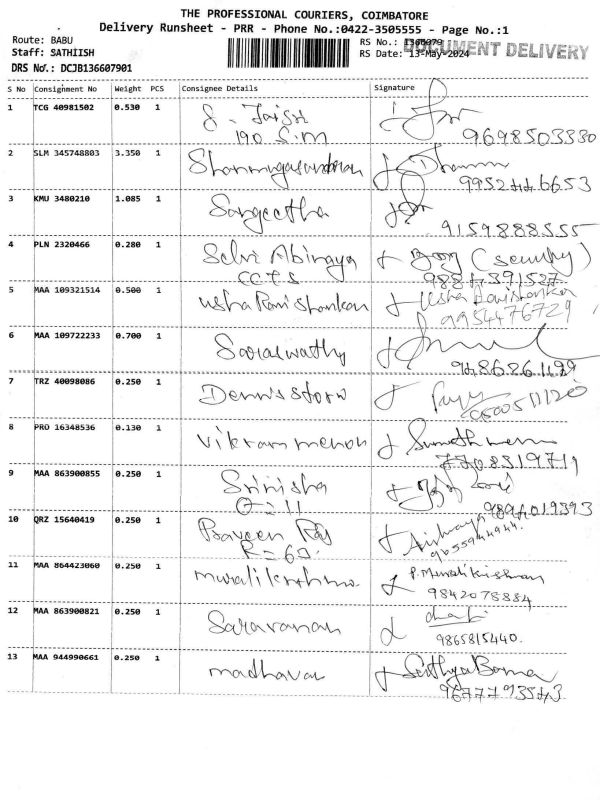 THE PROFESSIONAL COURIERS, COIMBATORE
Delivery Runsheet - PRR - Phone No.:0422-3505555 - Page No.:1
Route: BABU RS No.: 1366079 DOCUMENT DELIVERY
Staff: SATHIISH RS Date: 13-May-2024
DRS No.: DCJB136607901
S No Consignment No Weight PCS Consignee Details Signature
1 TCG 40981502 0.530 1 S. Jaisri
190 S.M 9698503330
2 SLM 345748803 3.350 1 Shanmugasundaram
9952446653
3 KMU 3480210 1.085 1 Sangeetha
9159888555
4 PLN 2320466 0.280 1 Selvi Abinaya (Security)
CCTS 9884391527
5 MAA 109321514 0.500 1 Usha Ravishankar Usha Ravishankar
9954476729
6 MAA 109722233 0.700 1 Saraswathy
9486261199
7 TRZ 40098086 0.250 1 Dennis Storo
8 PRO 16348536 0.130 1 Vikram menon
7708319719
9 MAA 863900855 0.250 1 Srinisha
9894019393
10 QRZ 15640419 0.250 1 Praveen Raj Aishwarya
R=60 9655944944
11 MAA 864423060 0.250 1 muralikrishna P. Murali Krishnan
9842078884
12 MAA 863900821 0.250 1 Saravanan
9865815440.
13 MAA 944990661 0.250 1 madhavan Sathya Bama
9677793543